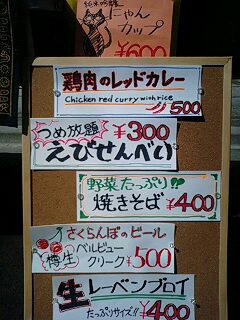 純米吟醸
にゃん
カップ
¥600
鶏肉のレッドカレー
Chicken red curry with rice
500
つめ放題 ¥300
えびせんべい
野菜たっぷり!!
焼きそば ¥400
さくらんぼのビール
樽生 ベルビュー
クリーク ¥500
生 レーベンブロイ
たっぷりサイズ!! ¥400